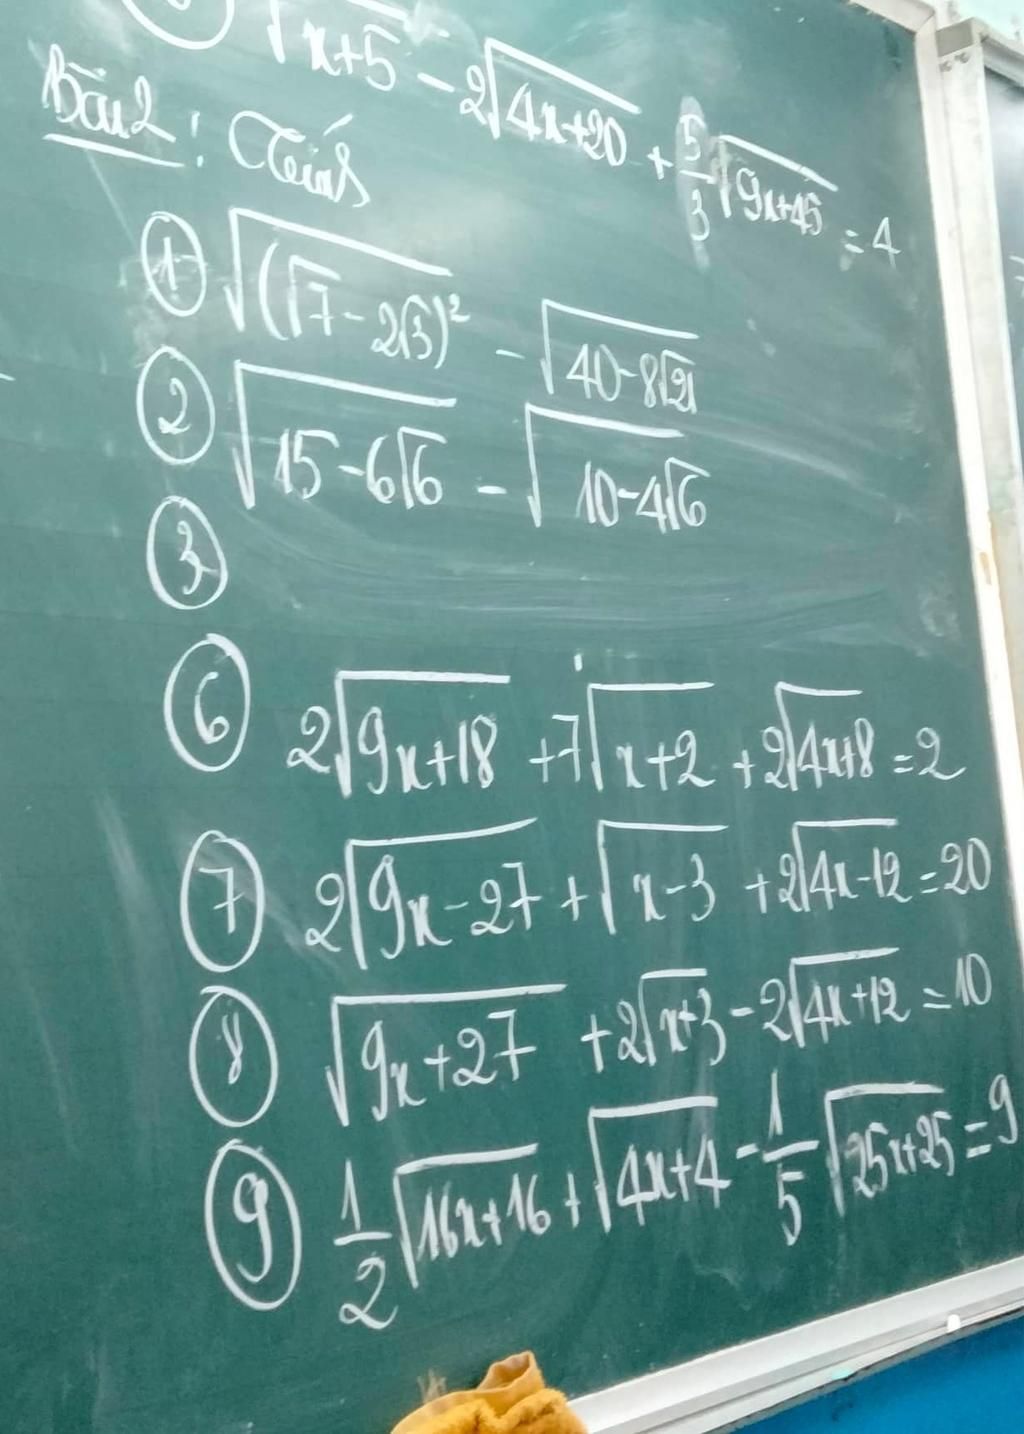 √(x+5) - 2√(4x+20) + 5/3 √(9x+45) = 4
Bài 2 : Tính
① √((√7 - 2√3)²) - √(40-8√21)
② √(15-6√6) - √(10-4√6)
③
⑥ 2√(9x+18) + 7√(x+2) + 2√(4x+8) = 2
⑦ 2√(9x-27) + √(x-3) + 2√(4x-12) = 20
⑧ √(9x+27) + 2√(x+3) - 2√(4x+12) = 10
⑨ 1/2 √(16x+16) + √(4x+4) - 1/5 √(25x+25) = 9